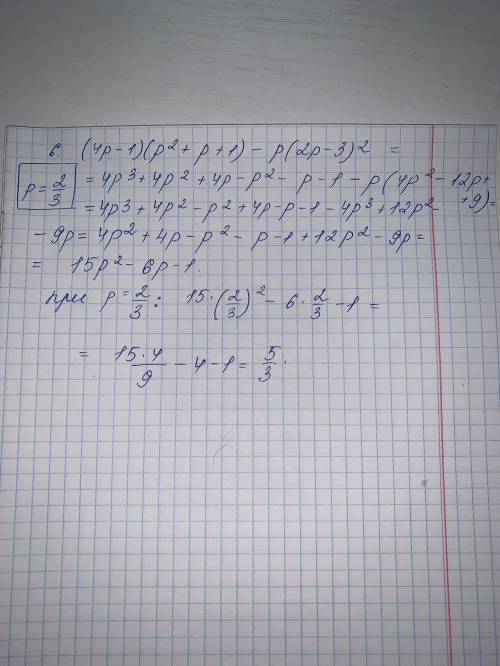 6. (4p-1)(p² + p + 1) - p(2p-3)² =
p = 2/3
= 4p³ + 4p² + 4p - p² - p - 1 - p(4p² - 12p +
+ 9) =
= 4p³ + 4p² - p² + 4p - p - 1 - 4p³ + 12p² -
- 9p = 4p² + 4p - p² - p - 1 + 12p² - 9p =
= 15p² - 6p - 1.
при p = 2/3 : 15 · (2/3)² - 6 · 2/3 - 1 =
= 15 · 4/9 - 4 - 1 = 5/3 .